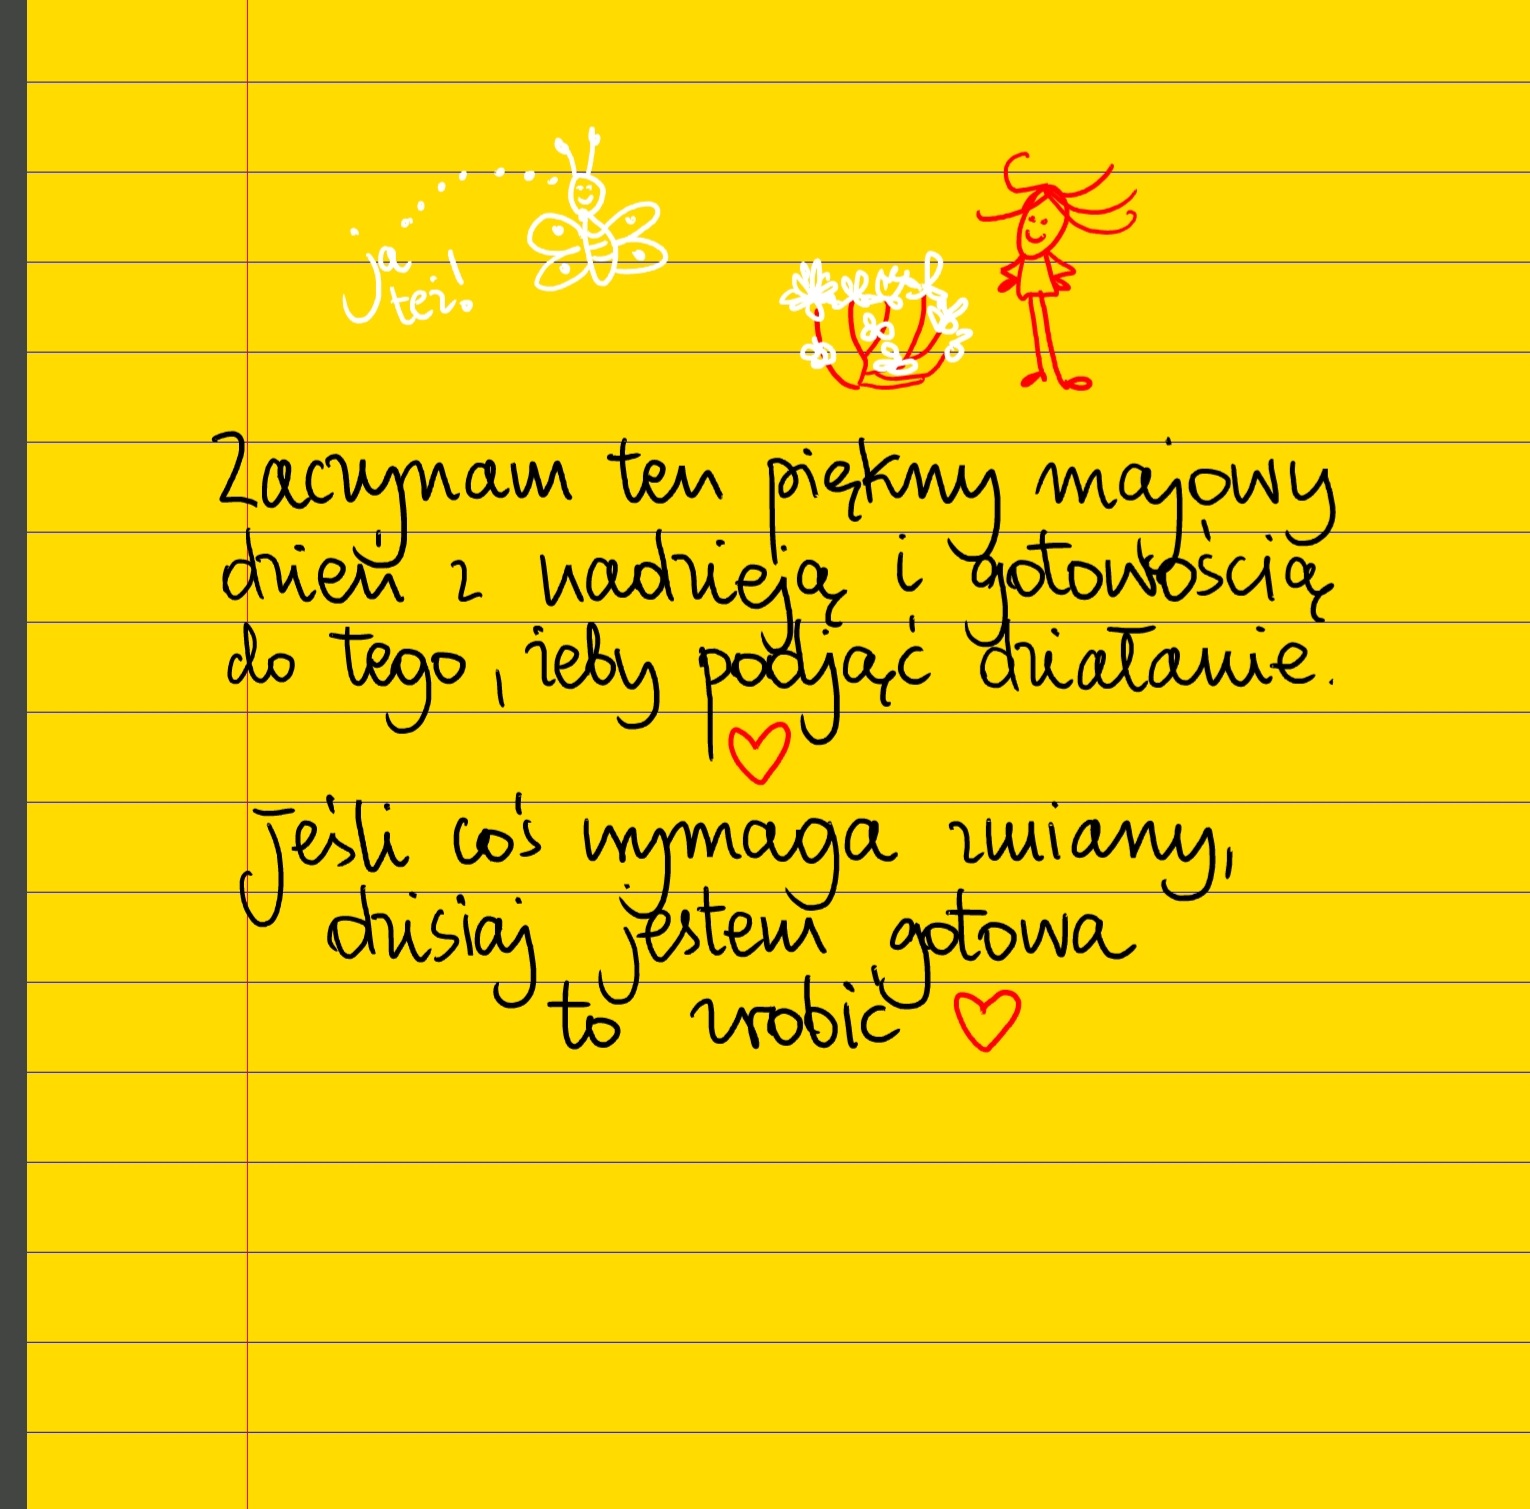 ja
też!
Zaczynam ten piękny majowy
dzień z nadzieją i gotowością
do tego, żeby podjąć działanie.
Jeśli coś wymaga zmiany,
dzisiaj jestem gotowa
to zrobić